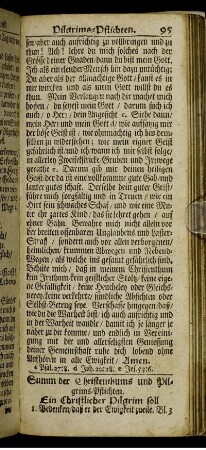 Pilgrims-Pflichten. 95
sen, aber auch aufrichtig zu vollbringen und zu
thun! Ach! lehre du mich solches nach der
Grösse deiner Gnaden; dann du bist mein Gott.
Ich als ein elender Mensch bin dazu untüchtig;
Du aber als der Allmächtige Gott, kanst es in
mir würcken und als mein Gott wilst du es
thun. Mein Verlangen nach der macht mich
hoffen, du seyest mein Gott, darum sich ich
auch, o HErr, dein Angesicht. Siehe dann,
mein HErr und mein Gott, wie
der böse Geist ist, wie ohnmächtig ich bin dem-
selben zu widerstehen, wie mein eigner Geist
gefährlich ist und ich wann ich mir selbst folge,
in allerley Zweiffelstrick-Gruben und Irrwege
gerathe. Darum gib mir deinen heiligen
Geist der da ist eine vollkommene gute Gab und
lauter gute Gabe. Derselbe dein guter Geist
führe mich sorgfältig und in Treuen, wie ein
Hirt sein schwächstes Schaf, und wie eine Mut-
ter ihr zartes Kind, das sie lehret gehen, auf
einer Bahn. Bewahre mich nicht allein vor
der breiten offenbaren Unglaubens und Laster-
Straß, sondern auch vor allen verborgenen,
heimlichen, krummen Abwegen und Neben-
Wegen, als welche ins gemein gefährlich sind.
Verhüte doch, daß in meinem Christenthum
kein Irrthum, kein geistlicher Stoltz, keine eige-
ne Gefälligkeit, keine Heucheley oder Gleich-
heit, keine verkehrte sündliche Absichten oder
Selbst-Betrug seye. Verschaffe hingegen, daß
wie du die Wahrheit bist, also auch ich aufrichtig
und in der Warheit wandle, damit ich je länger je
näher zu dir komme, und endlich in Vereini-
gung mit dir und allerseligsten Geniessung
deiner Gemeinschafft ruhe, dich lobend ohne
Aufhören in alle Ewigkeit, Amen.
Psal. 27:8. Joh. 20:28. Jes. 63:16.
Summ der Christenthums und Pil-
grims-Pflichten.
Ein Christlicher Pilgrim soll
1. Bedencken, daß er der Ewigkeit zueile. Bl. 3